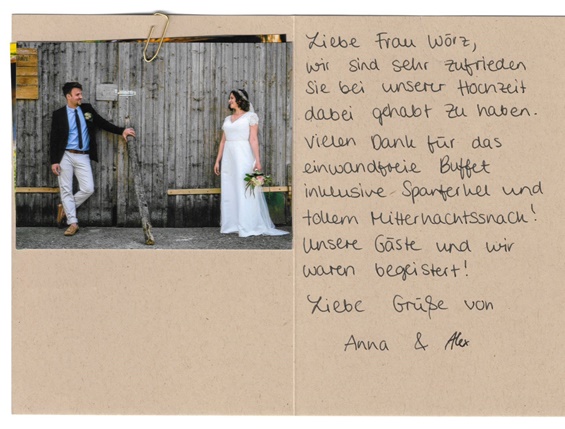 Liebe Frau Wörz,
wir sind sehr zufrieden
Sie bei unserer Hochzeit
dabei gehabt zu haben.
Vielen Dank für das
einwandfreie Buffet
inklusive Spanferkel und
tollem Mitternachtssnack!
Unsere Gäste und wir
waren begeistert!
Liebe Grüße von
Anna & Alex